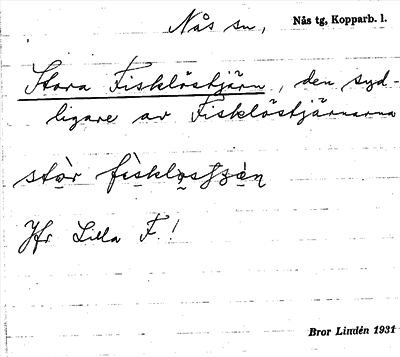 Nås sn,
Nås tg, Kopparb. l.
Stora Fisklöstjärn, den syd-
ligare av Fisklöstjärnarna
stor fisklosʃʒɛ̀n
Jfr Lilla F.!
Bror Lindén 1931